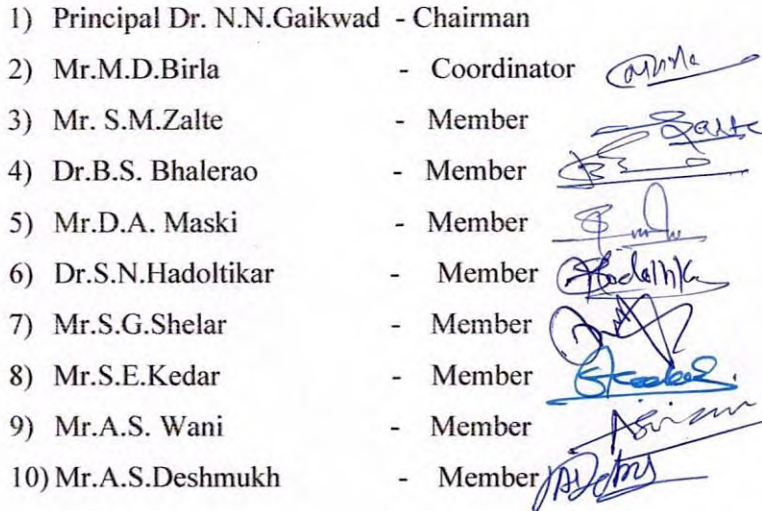 1) Principal Dr. N.N.Gaikwad - Chairman
2) Mr.M.D.Birla - Coordinator
3) Mr. S.M.Zalte - Member
4) Dr.B.S. Bhalerao - Member
5) Mr.D.A. Maski - Member
6) Dr.S.N.Hadoltikar - Member
7) Mr.S.G.Shelar - Member
8) Mr.S.E.Kedar - Member
9) Mr.A.S. Wani - Member
10) Mr.A.S.Deshmukh - Member